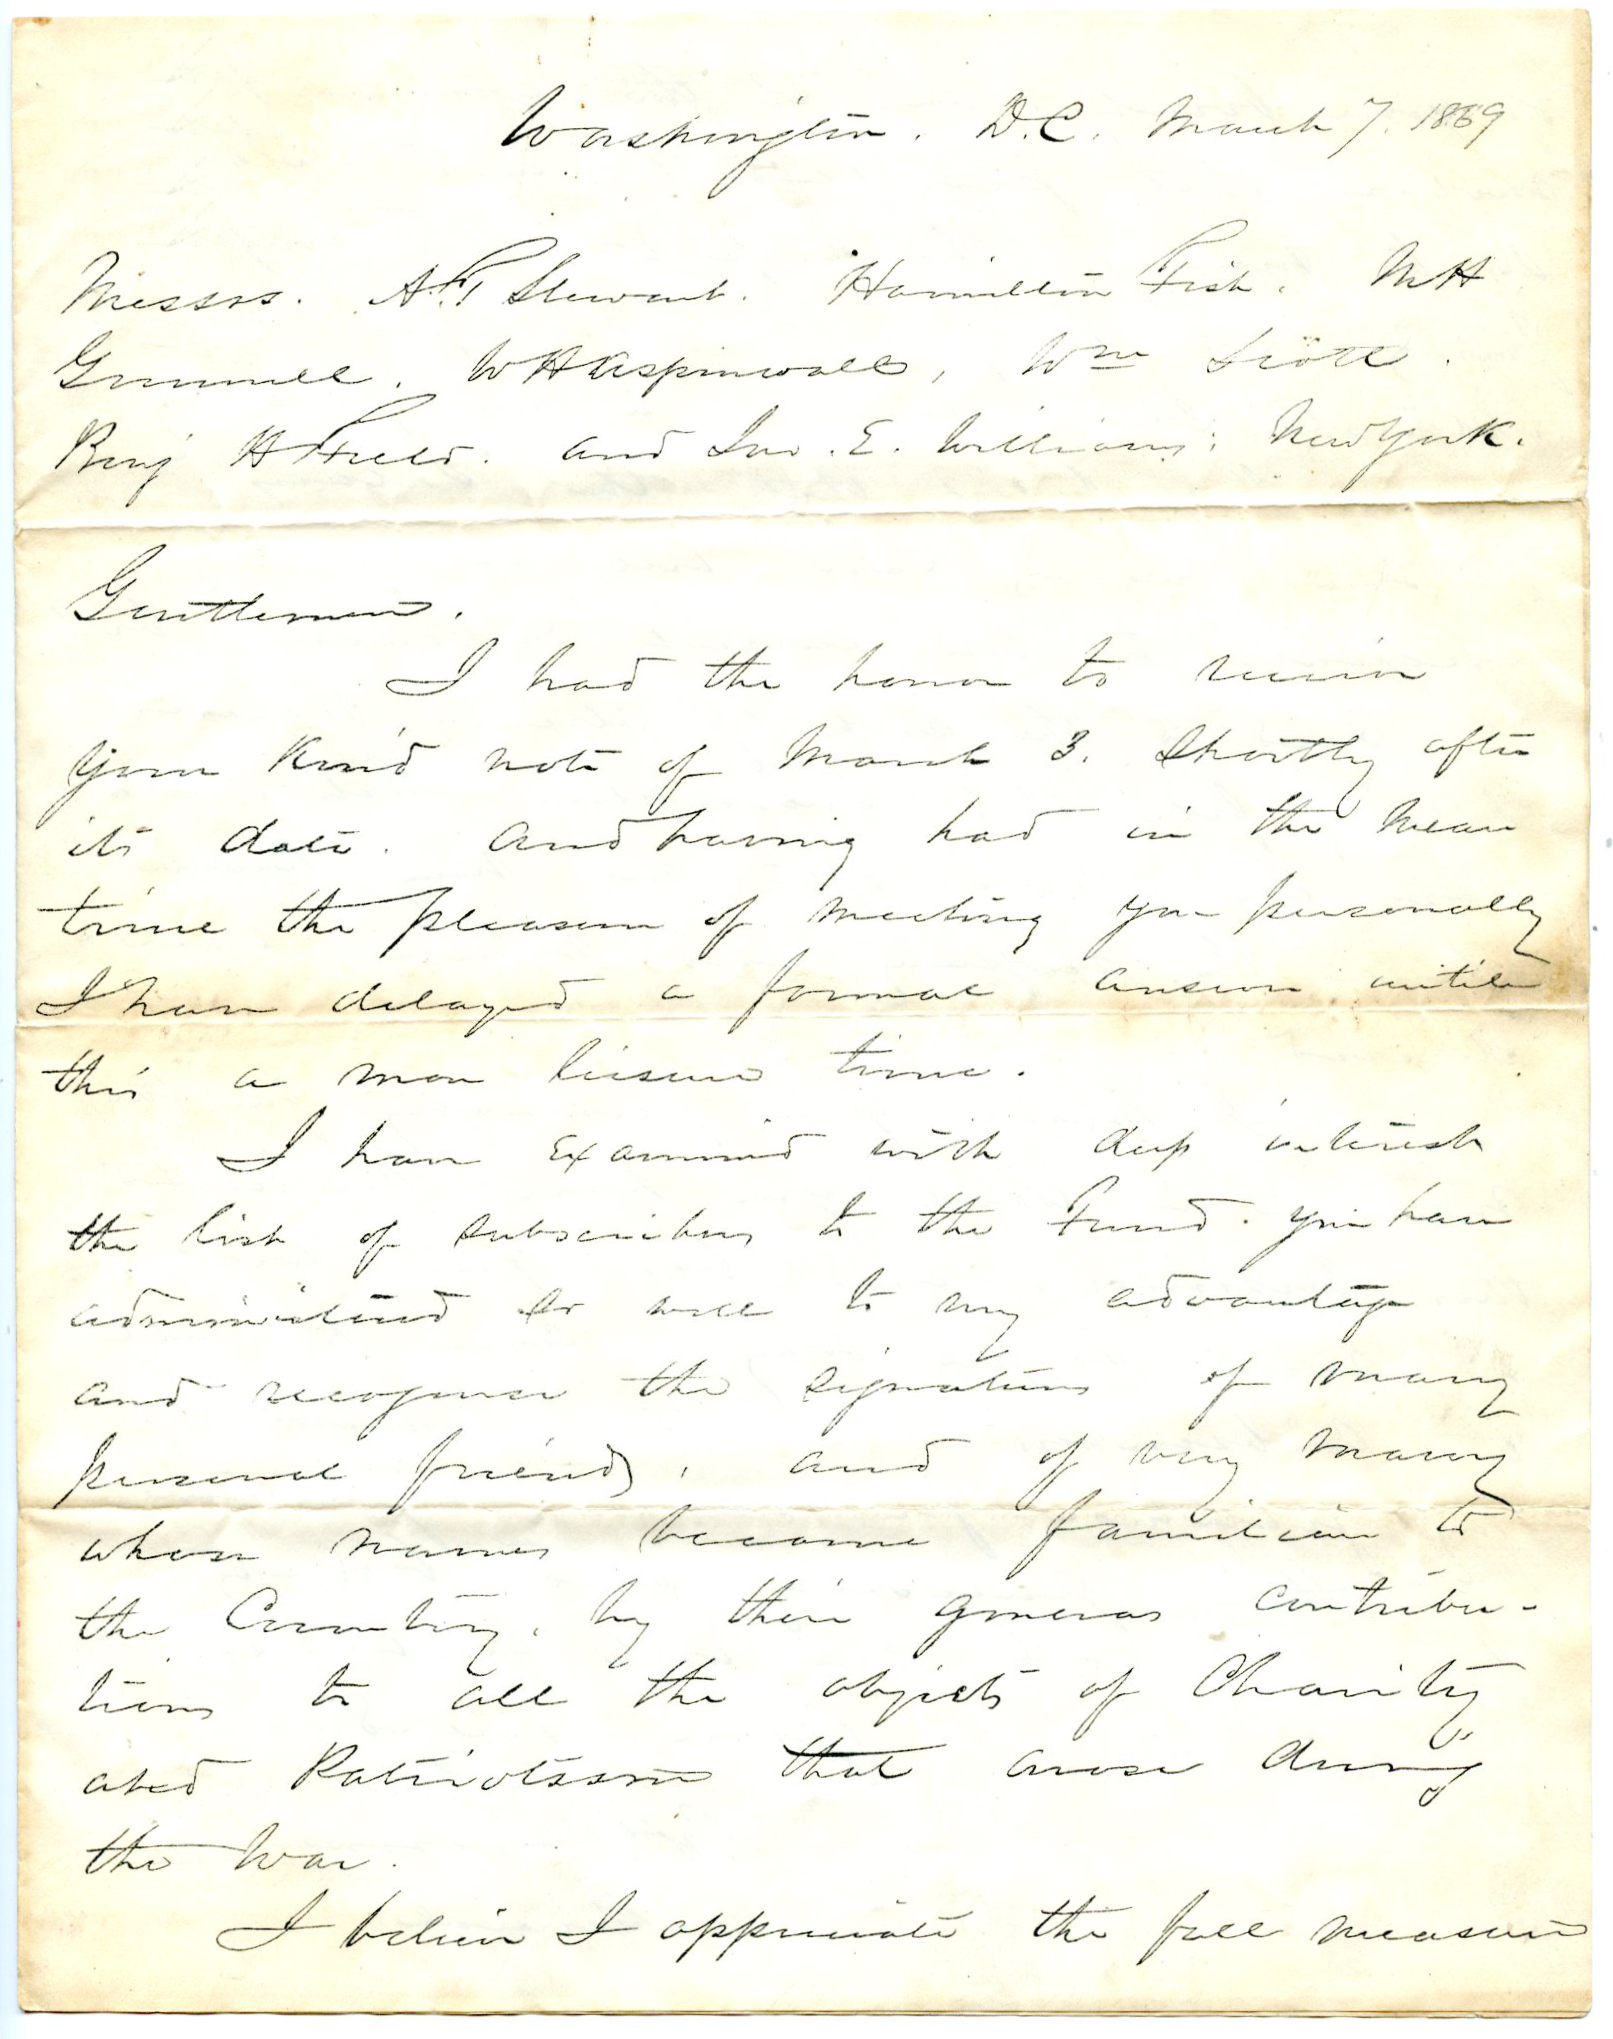 Washington. D.C. March 7. 1869
Messrs. A. T. Stewart. Hamilton Fish. M H
Grinnell. W H Aspinwall, Wm Scott.
Benj H Field. and Jno. E. Williams: New York.
Gentlemen.
I had the honor to receive
your kind note of March 3. Shortly after
its date. and having had in the mean
time the pleasure of meeting you personally
I have delayed a formal answer until
this a more leisure time.
I have examined with deep interest
the list of subscribers to the Fund. you have
administered so well to my advantage
and recognize the signatures of many
personal friends, and of very many
whose names became familiar to
the Country, by their generous contribu-
tions to all the objects of Charity
and Patriotism that arose during
the War.
I believe I appreciate the full measure